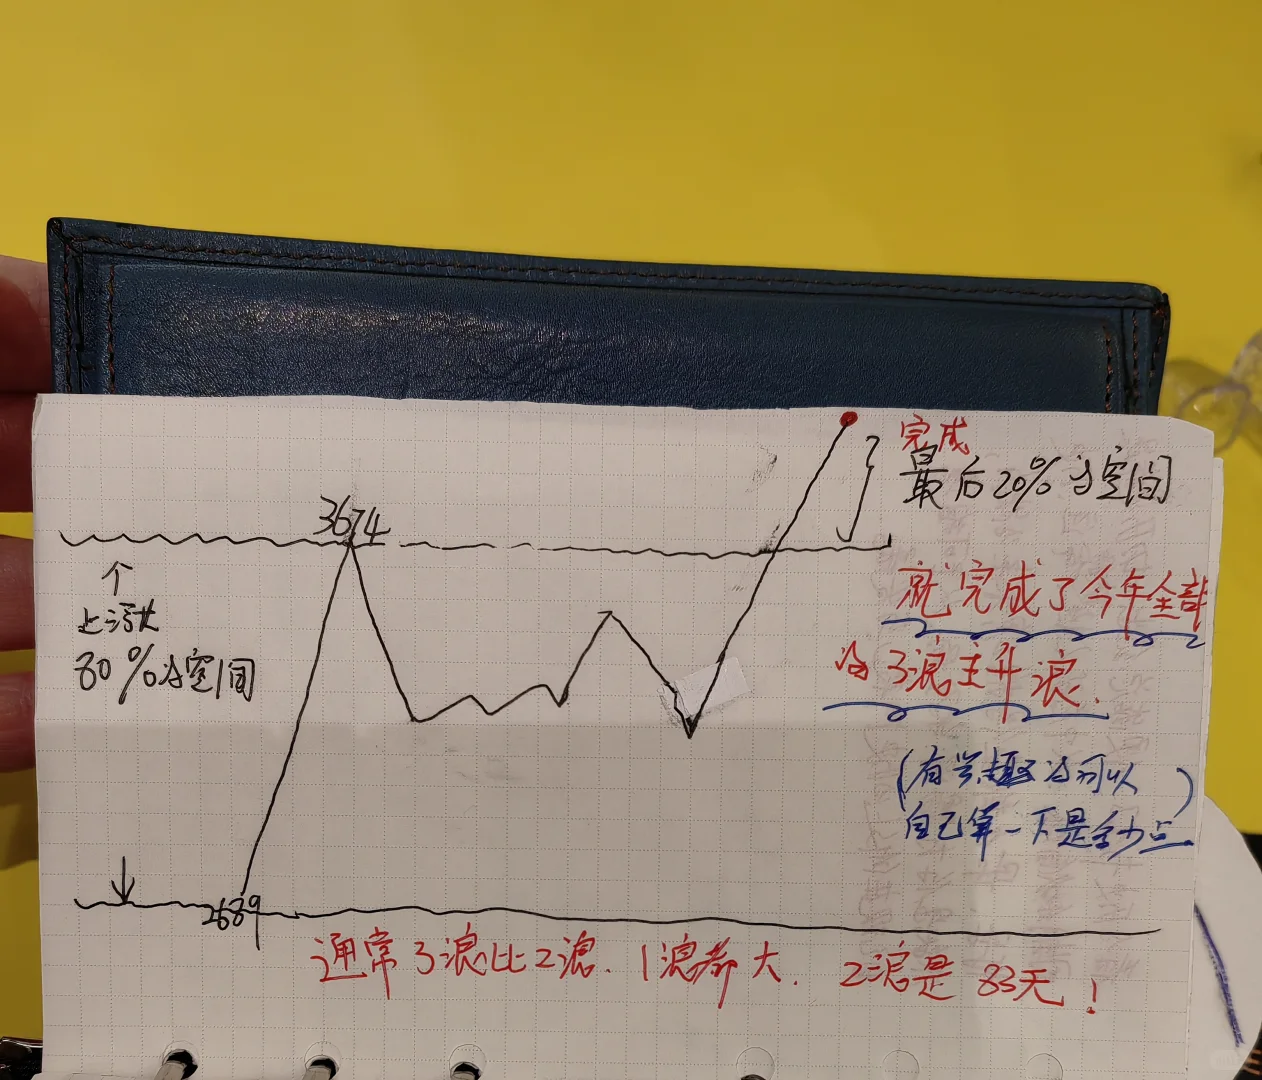 3674
完成
最后20%的空间
个
上涨大
80%的空间
就完成了今年全部
的3浪主升浪.
(有兴趣的可以
自己算一下是多少点)
2689
通常3浪比2浪.1浪都大. 2浪是83天!